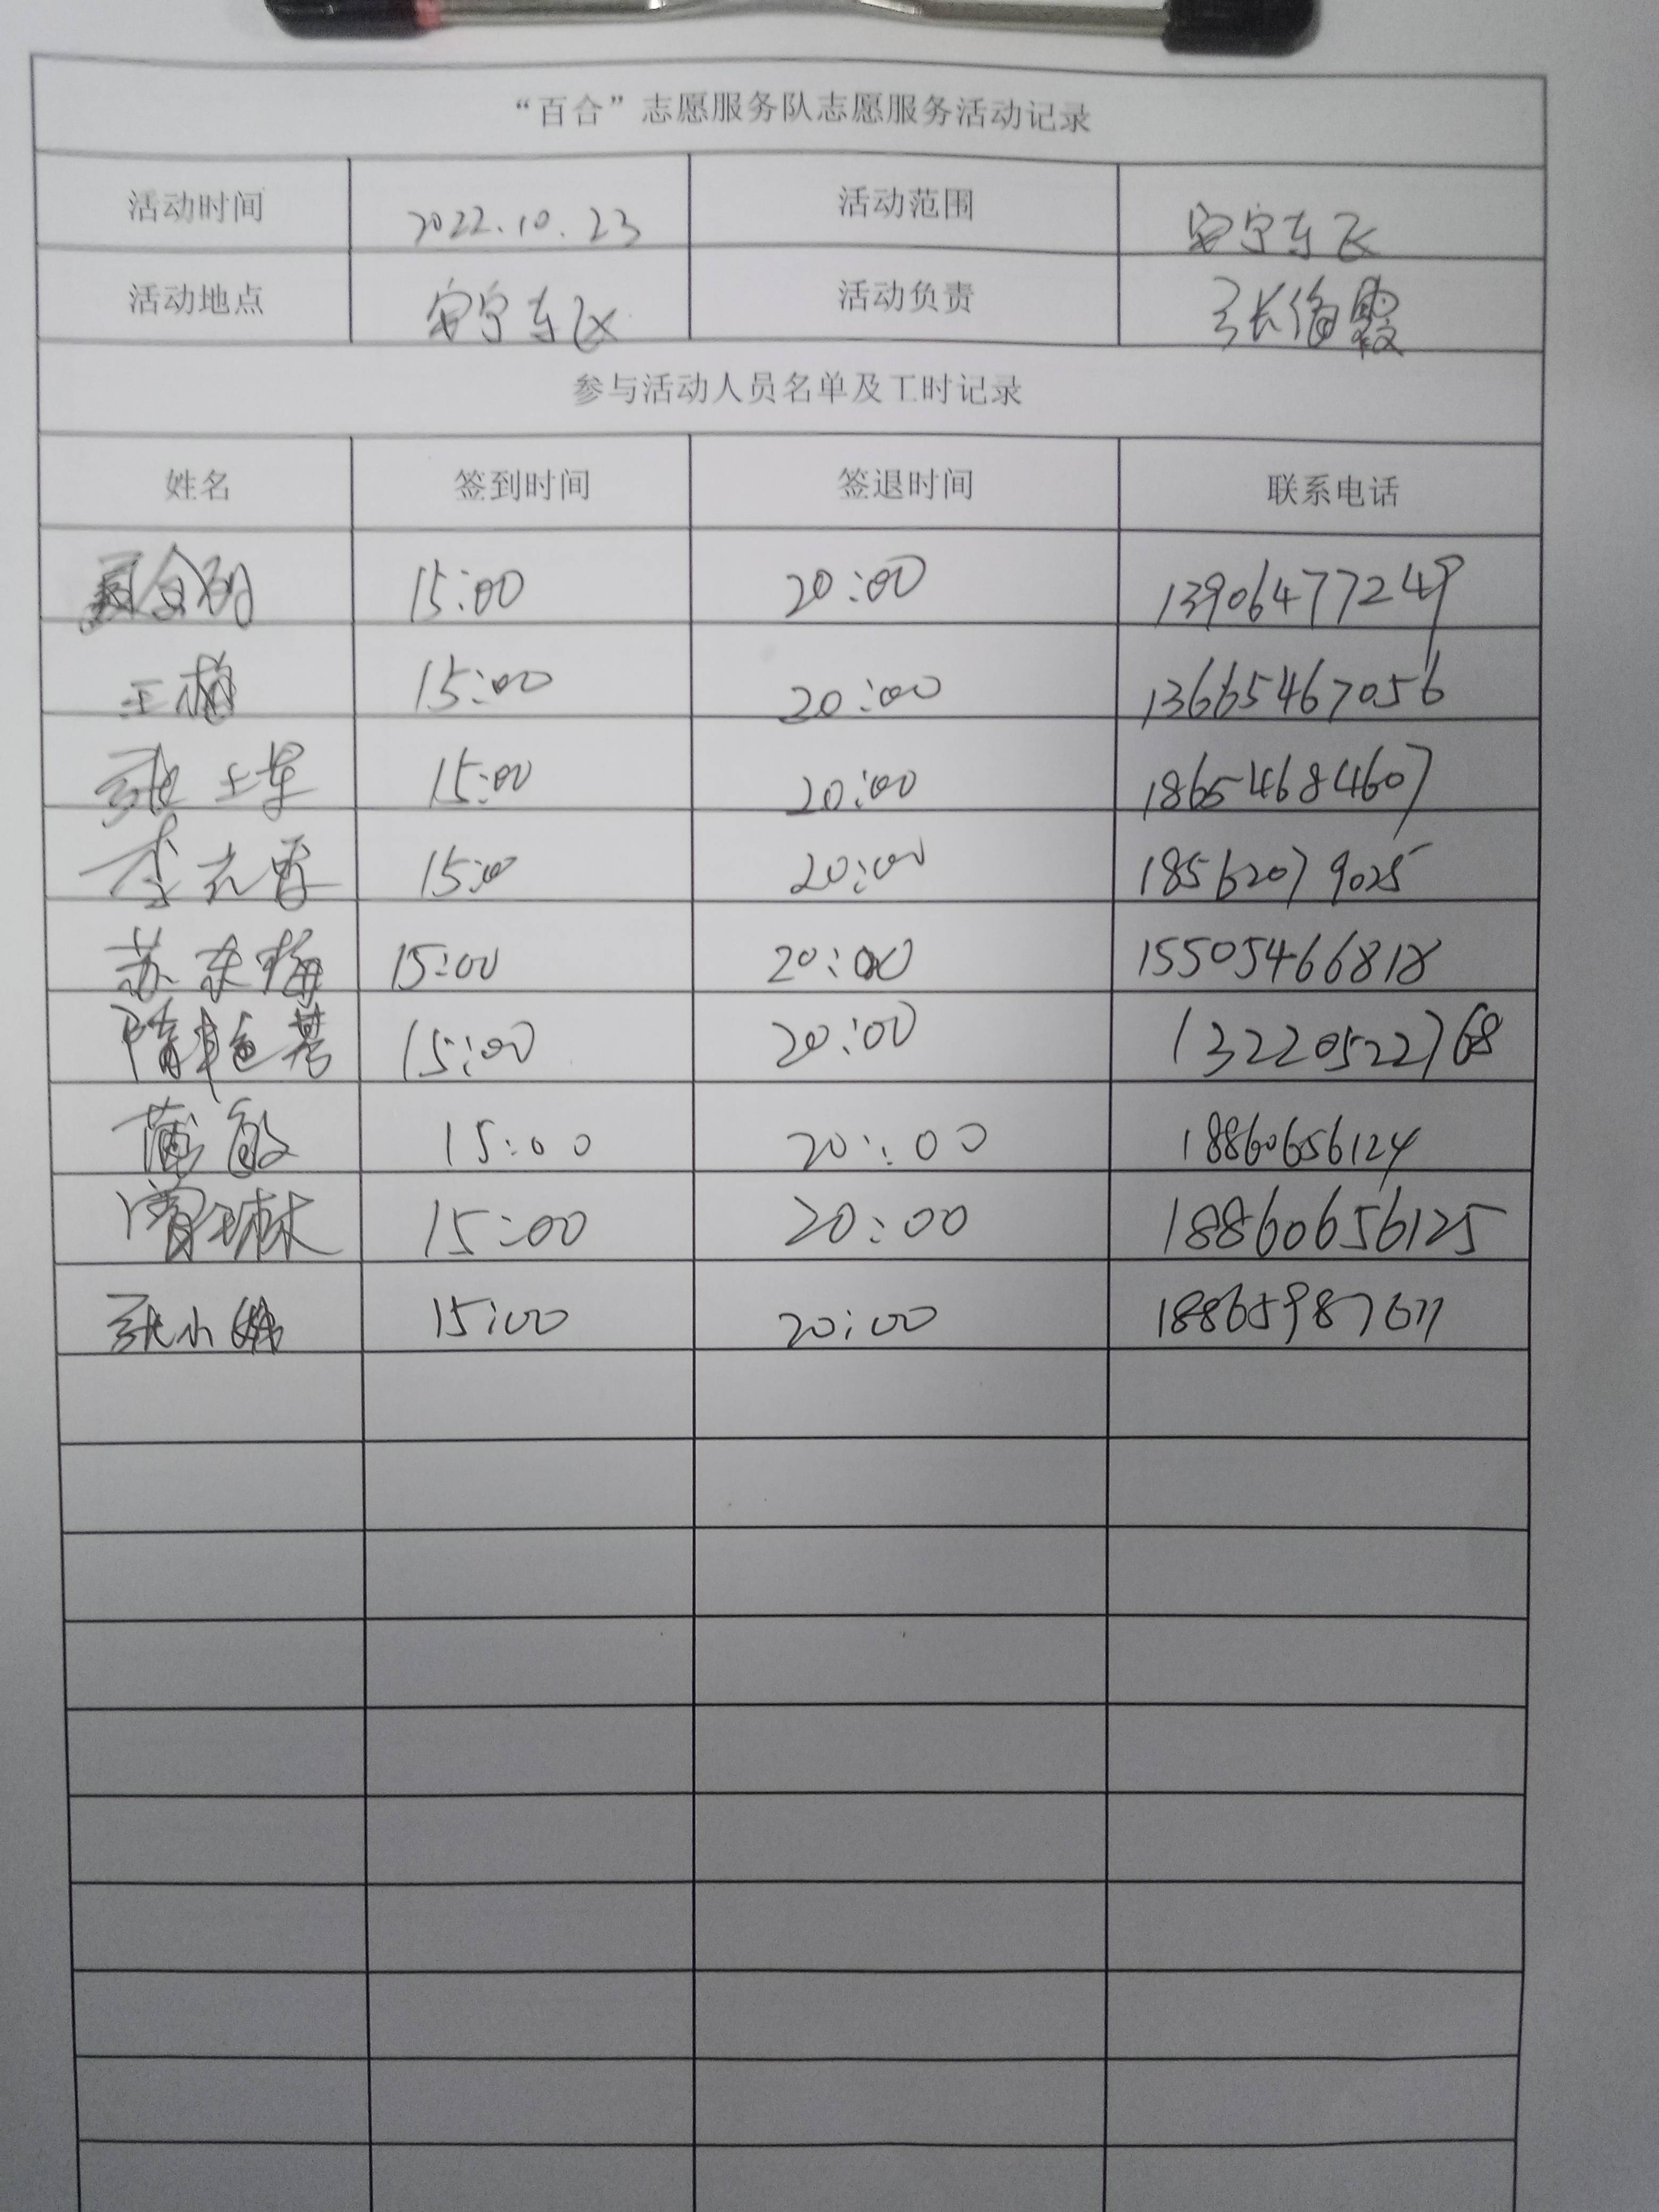 “百合”志愿服务队志愿服务活动记录
活动时间 2022.10.23 活动范围 安宁东区
活动地点 安宁东区 活动负责 张俊霞
参与活动人员名单及工时记录
姓名 签到时间 签退时间 联系电话
15:00 20:00 13906477249
王梅 15:00 20:00 13665467056
张 15:00 20:00 18654684607
李 15:00 20:00 18562079025
苏东梅 15:00 20:00 15505466818
隋 15:00 20:00 13220522768
蒲敏 15:00 20:00 18860656124
15:00 20:00 18860656125
张小娜 15:00 20:00 18865987611